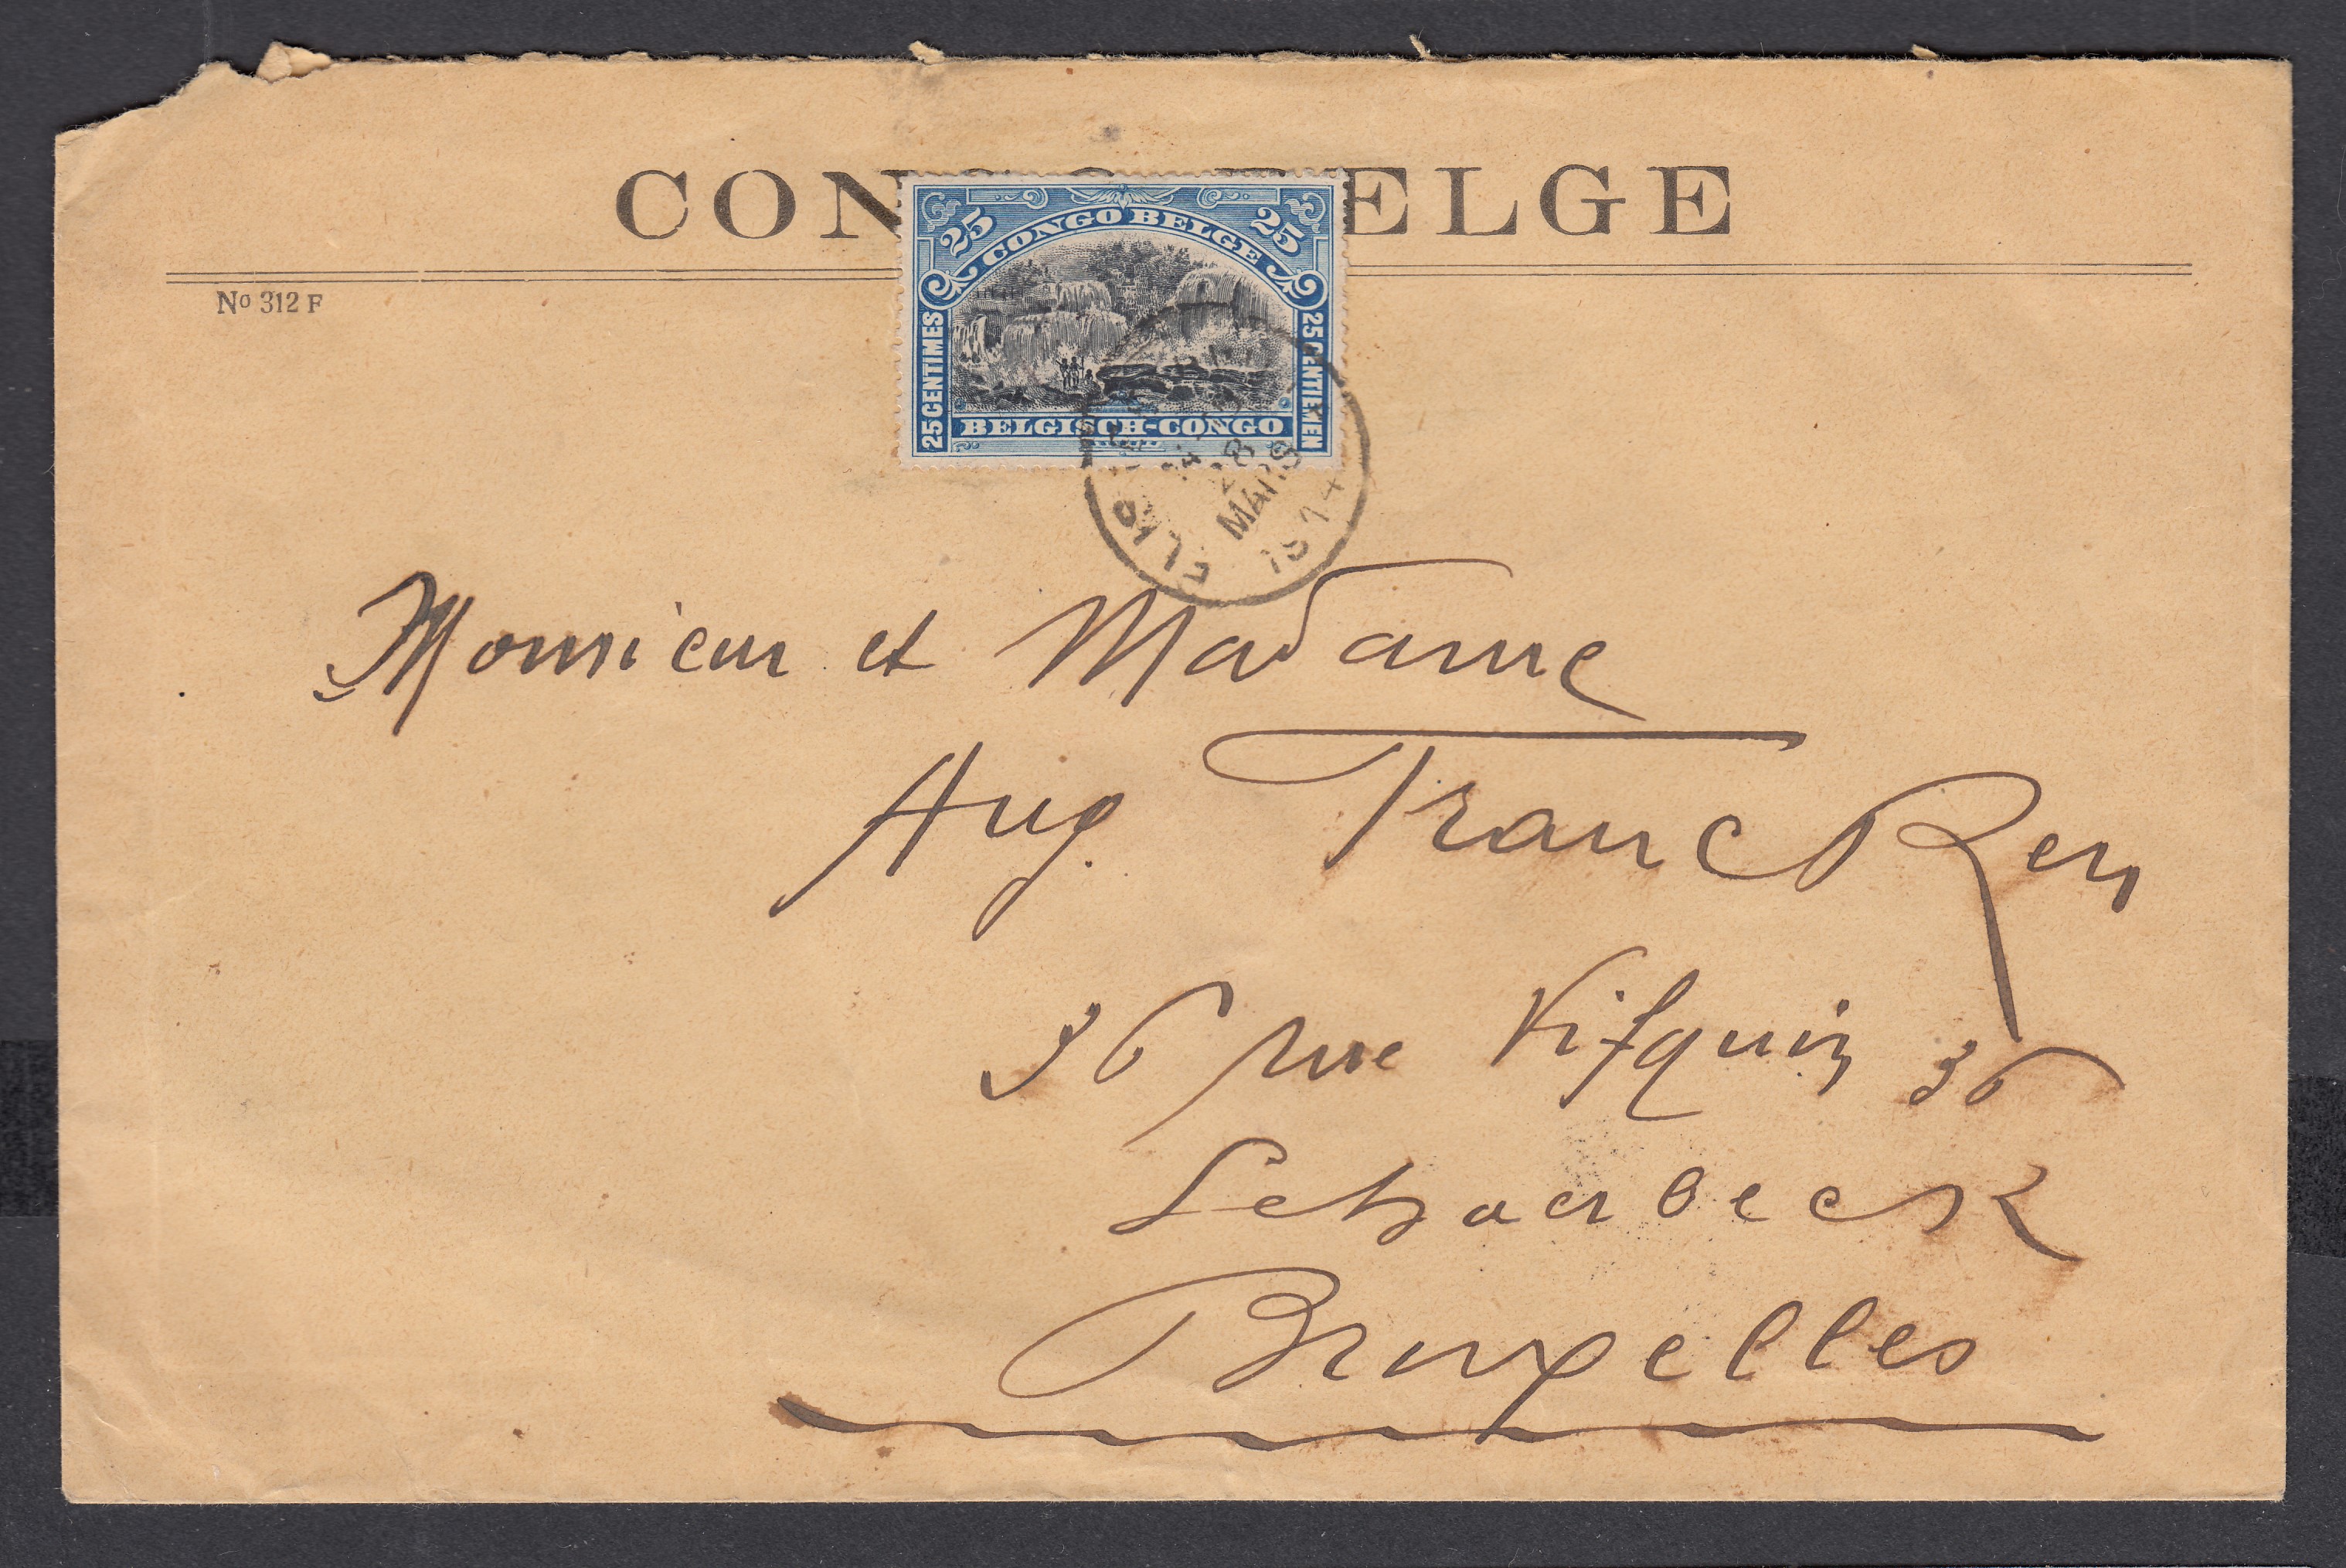 CON ELGE
No 312 F
25 25
CONGO BELGE
25 CENTIMES
25 CENTIEMEN
BELGISCH-CONGO
MARS
1914
Monsieur et Madame
Aug. Francken
36 rue Vifquin 36
Schaerbeek
Bruxelles